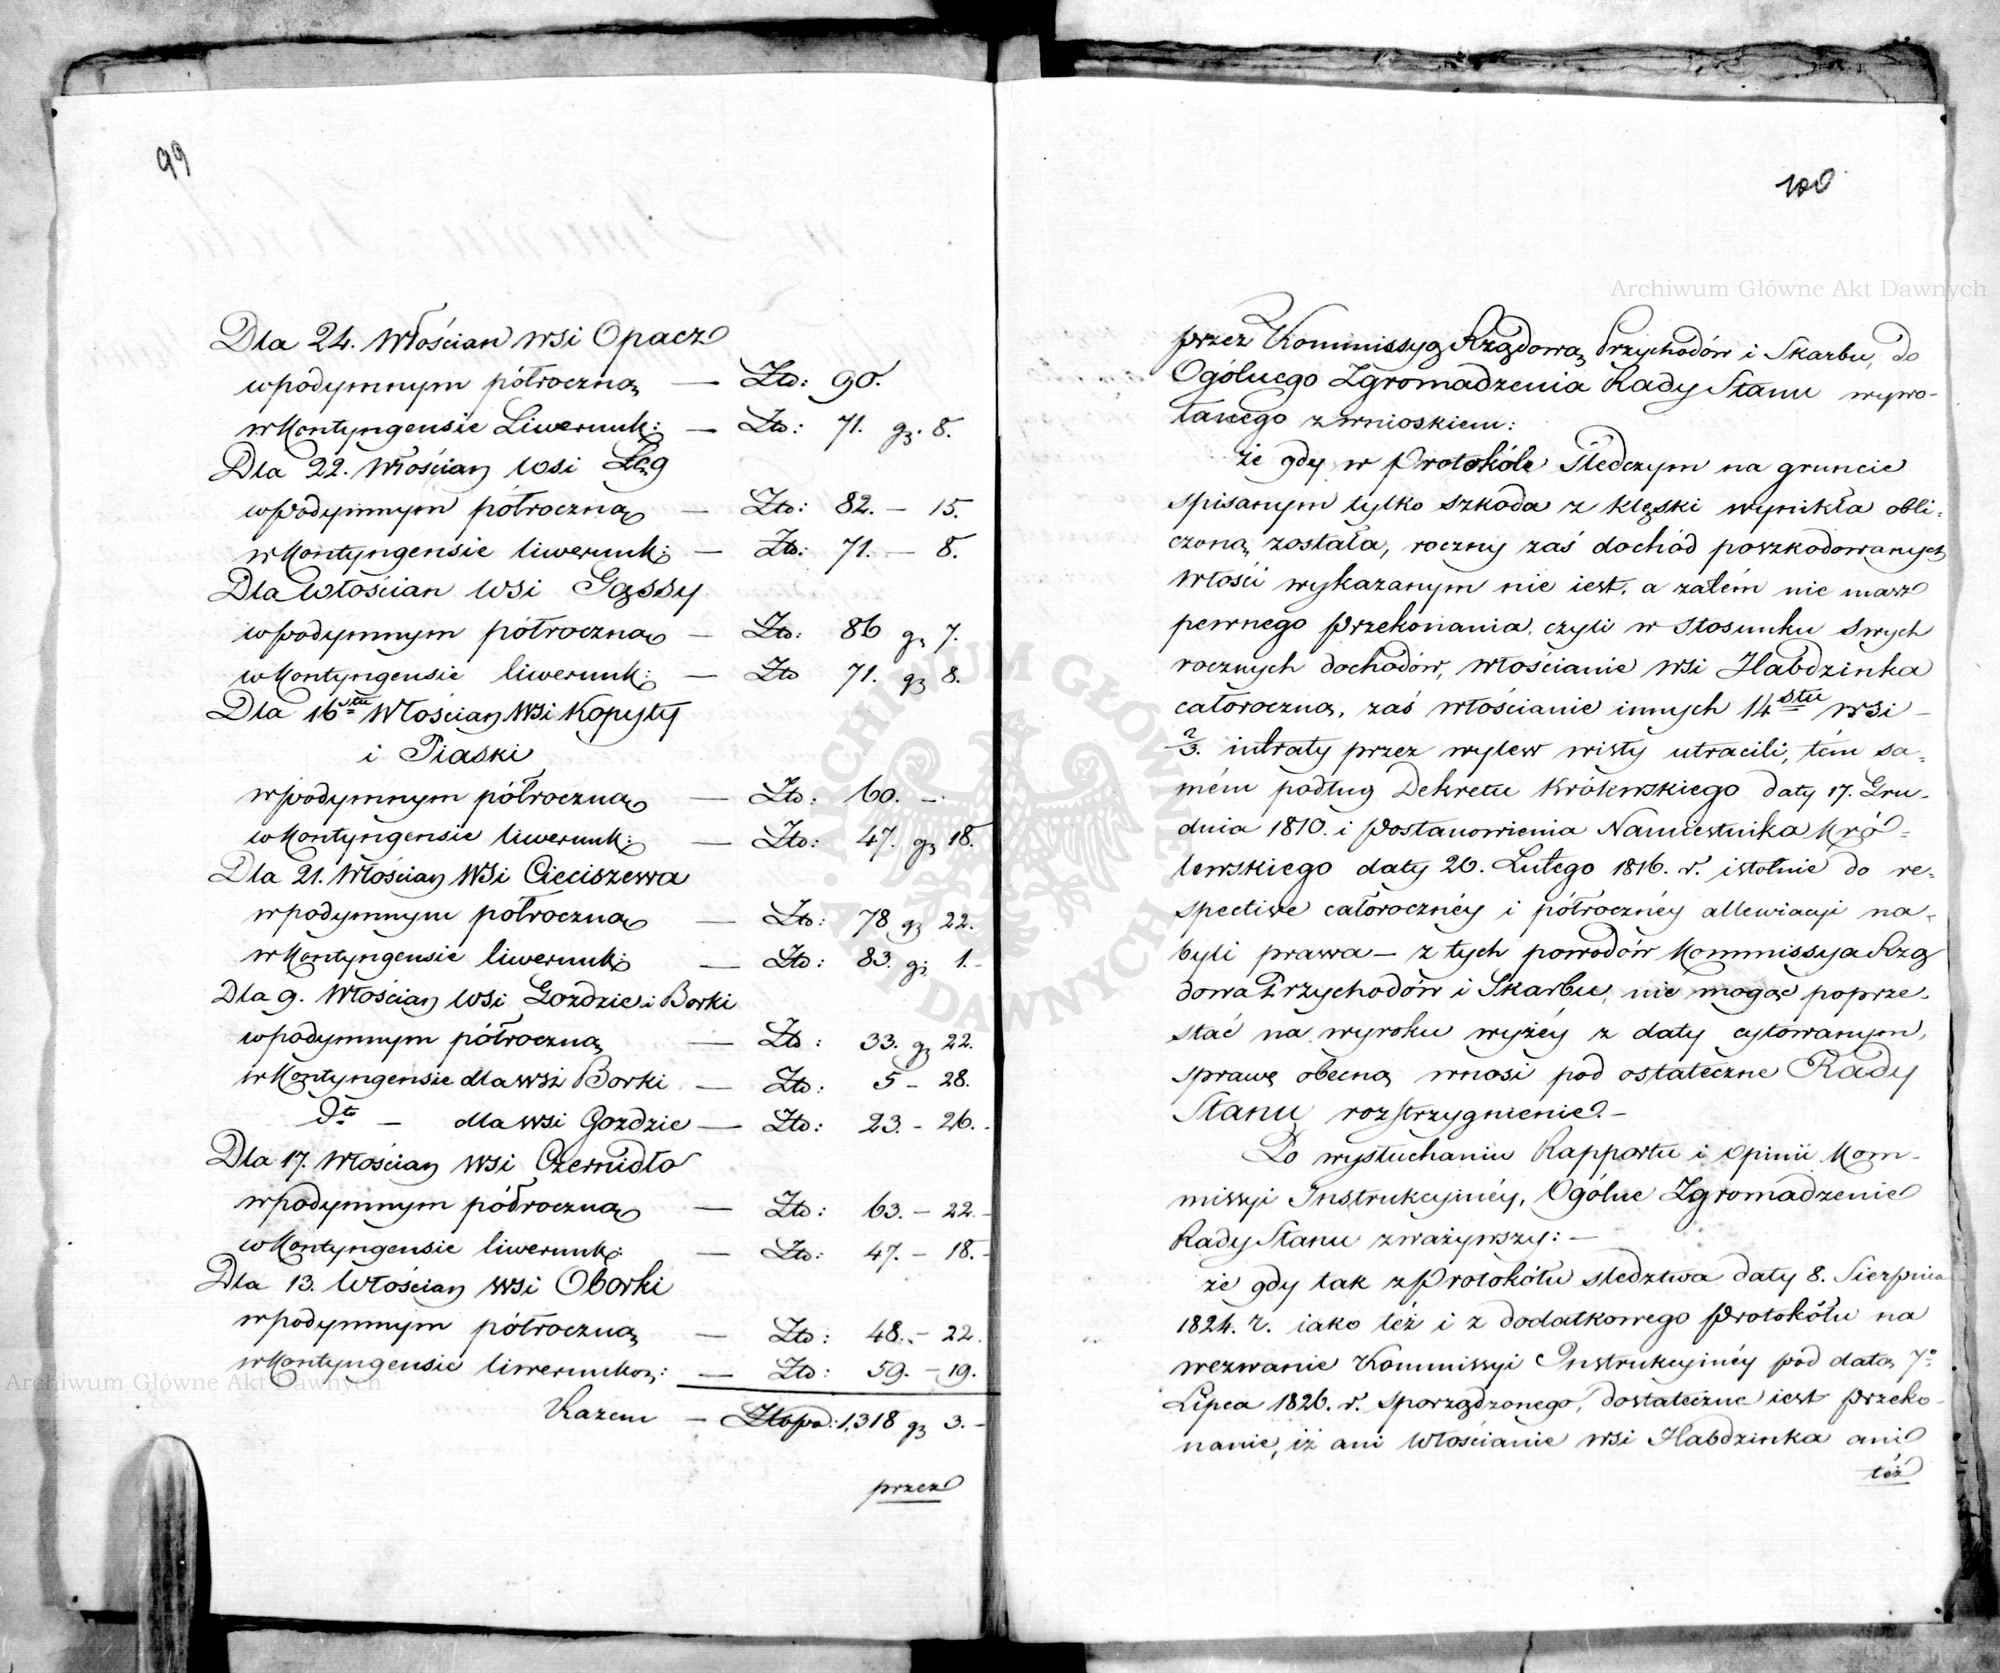 99
Dla 24. Włościan wsi Opacz
w podymnym półroczną — Złp: 90.
w Kontyngensie Liwerunk: — Złp: 71. gr. 8.
Dla 22. Włościan wsi Łęg
w podymnym półroczną — Złp: 82. — 15.
w Kontyngensie liwerunk: — Złp: 71. — 8.
Dla Włościan wsi Gąssy
w podymnym półroczną — Złp: 86 gr 7.
w Kontyngensie liwerunk: — Złp 71. gr 8.
Dla 16stu Włościan wsi Kopyty
i Piaski
w podymnym półroczną — Złp: 60. —
w Kontyngensie liwerunk: — Złp: 47. gr 18.
Dla 21. Włościan wsi Cieciszewa
w podymnym półroczną — Złp: 78 gr 22.
w Kontyngensie liwerunk: — Złp: 83. gr 1.-
Dla 9. Włościan wsi Gozdzie i Borki
w podymnym półroczną — Złp: 33. gr 22.
w Kontyngensie dla wsi Borki — Złp: 5 — 28.
Dto — dla wsi Gozdzie — Złp: 23. — 26.
Dla 17. Włościan wsi Czernidło
w podymnym półroczną — Złp: 63. — 22.
w Kontyngensie liwerunk: — Złp: 47. — 18.
Dla 13. Włościan wsi Oborki
w podymnym półroczną — Złp: 48. — 22.
w Kontyngensie liwerunkow: — Złp: 59. — 19.
Razem — Złopo: 1,318 gr 3. —
przez
100
przez Kommissyą Rządową Przychodów i Skarbu, do
Ogólnego Zgromadzenia Rady Stanu wywo-
łanego z wnioskiem:
że gdy w Protokóle Śledczym na gruncie
spisanym tylko szkoda z klęski wynikła obli-
czoną została, roczny zaś dochód poszkodowanych
włości wykazanym nie iest, a zatém nie masz
pewnego przekonania, czyli w stosunku swych
rocznych dochodów, włościanie wsi Habdzinka
całoroczną, zaś włościanie innych 14stu wsi —
2/3. intraty przez wylew wisły utracili, tém sa-
mém podług Dekretu Królewskiego daty 17. Gru-
dnia 1810. i Postanowienia Namiestnika Kró-
lewskiego daty 20. Lutego 1816. r. istotnie do re-
spective całorocznéy i półrocznéy allewiacyi na-
byli prawa — z tych powodów Kommissya Rzą
dowa Przychodów i Skarbu, nie mogąc poprze-
stać na wyroku wyżéy z daty cytowanym,
sprawę obecną wnosi pod ostateczne Rady
Stanu rozstrzygnienie. —
Po wysłuchaniu Rapportu i Opinii Kom-
missyi Instrukcyinéy, Ogólne Zgromadzenie
Rady Stanu zważywszy: —
że gdy tak z Protokółu sledztwa daty 8. Sierpnia
1824. r. iako też i z dodatkowego Protokółu na
wezwanie Kommissyi Instrukcyinéy pod datą 7o
Lipca 1826. r. sporządzonego, dostateczne iest przeko-
nanie, iż ani Włościanie wsi Habdzinka ani
też
Archiwum Główne Akt Dawnych
Archiwum Główne Akt Dawnych
ARCHIWUM GŁÓWNE AKT DAWNYCH